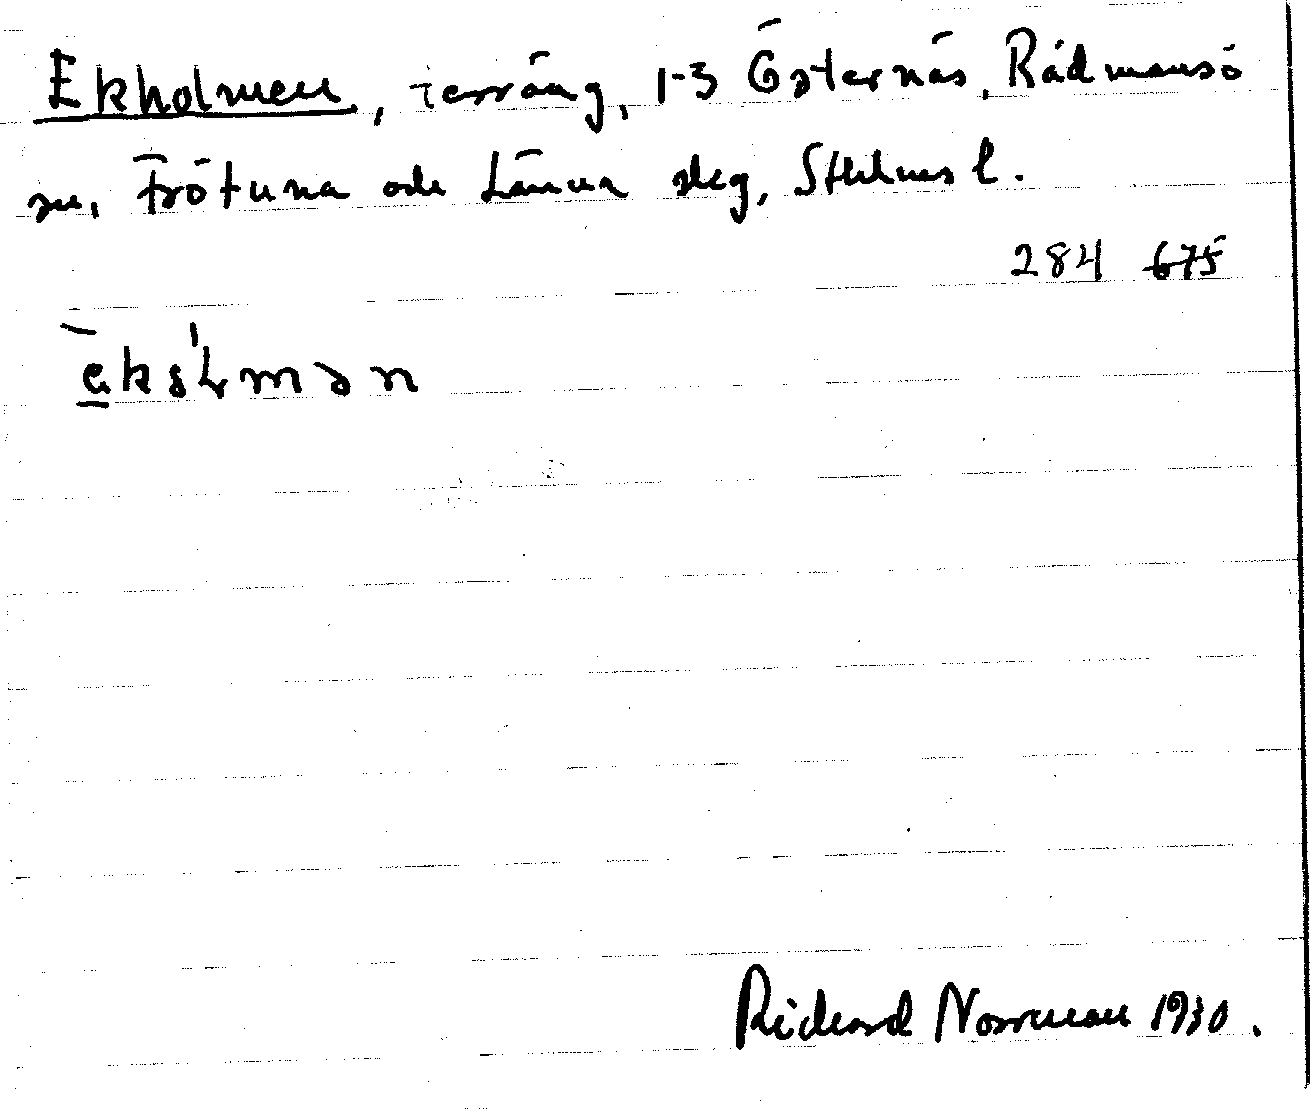 Ekholmen, terräng, 1-3 Östernäs, Rådmansö
sn, Frötuna och Länna skg, Sthlms l.
284 675
Rickard Norrman 1930.